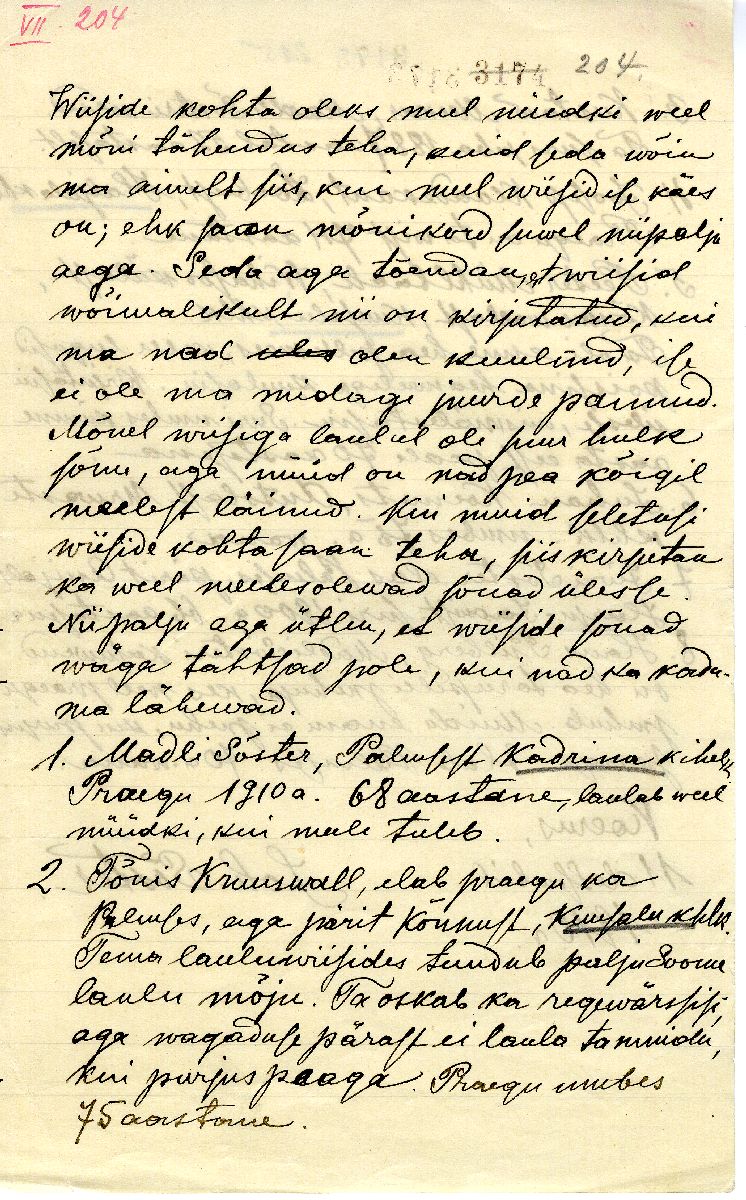 VII 204
3174 204.
Wiiside kohta oleks mul nüüdki weel
mõni tähendus teha, kuid seda wõin
ma ainult siis, kui mul wiisid ise käes
on; ehk saan mõnikord suwel niipalju
aega. Seda aga tõendan, et wiisid
wõimalikult nii on kirjutatud, kui
ma nad olen kuulnud, ise
ei ole ma midagi juurde pannud.
Mõnel wiisiga laulul oli suur hulk
sõnu, aga nüüd on nad pea kõigil
meelest läinud. Kui muid seletusi
wiiside kohta saan teha, siis kirjutan
ka weel meelesolewad sõnad ülesse.
Niipalju aga ütlen, et wiiside sõnad
wäga tähtsad pole, kui nad ka kadu-
ma lähewad.
1. Madli Söster, Palmsest Kadrina kihelk.
Praegu 1910 a. 68 aastane, laulab weel
nüüdki, kui meele tuleb.
2. Tõnis Kruuswall, elab praegu ka
Palmses, aga pärit Kõnnust, Kuusalu khlk.
Tema lauluwiisides tundub palju Soome
laulu mõju. Ta oskab ka regewärssisi,
aga wagaduse pärast ei laula ta muidu,
kui purjus peaga. Praegu umbes
75 aastane.